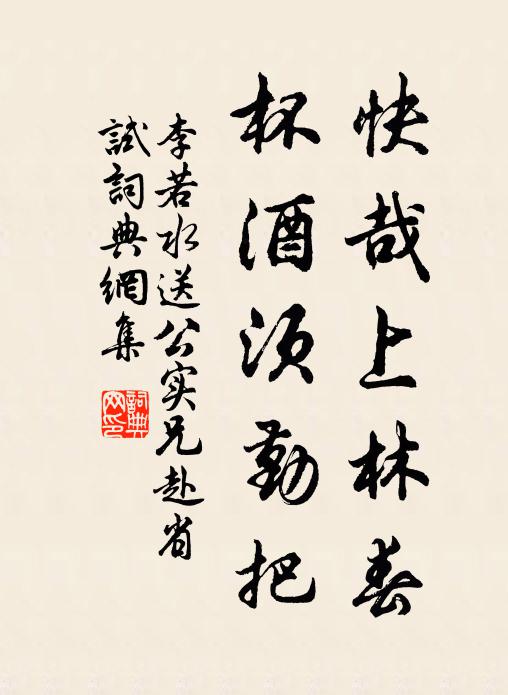 快哉上林春
杯酒须勤把
李若水送公实兄赴省
試詞典網集
詞典
网印